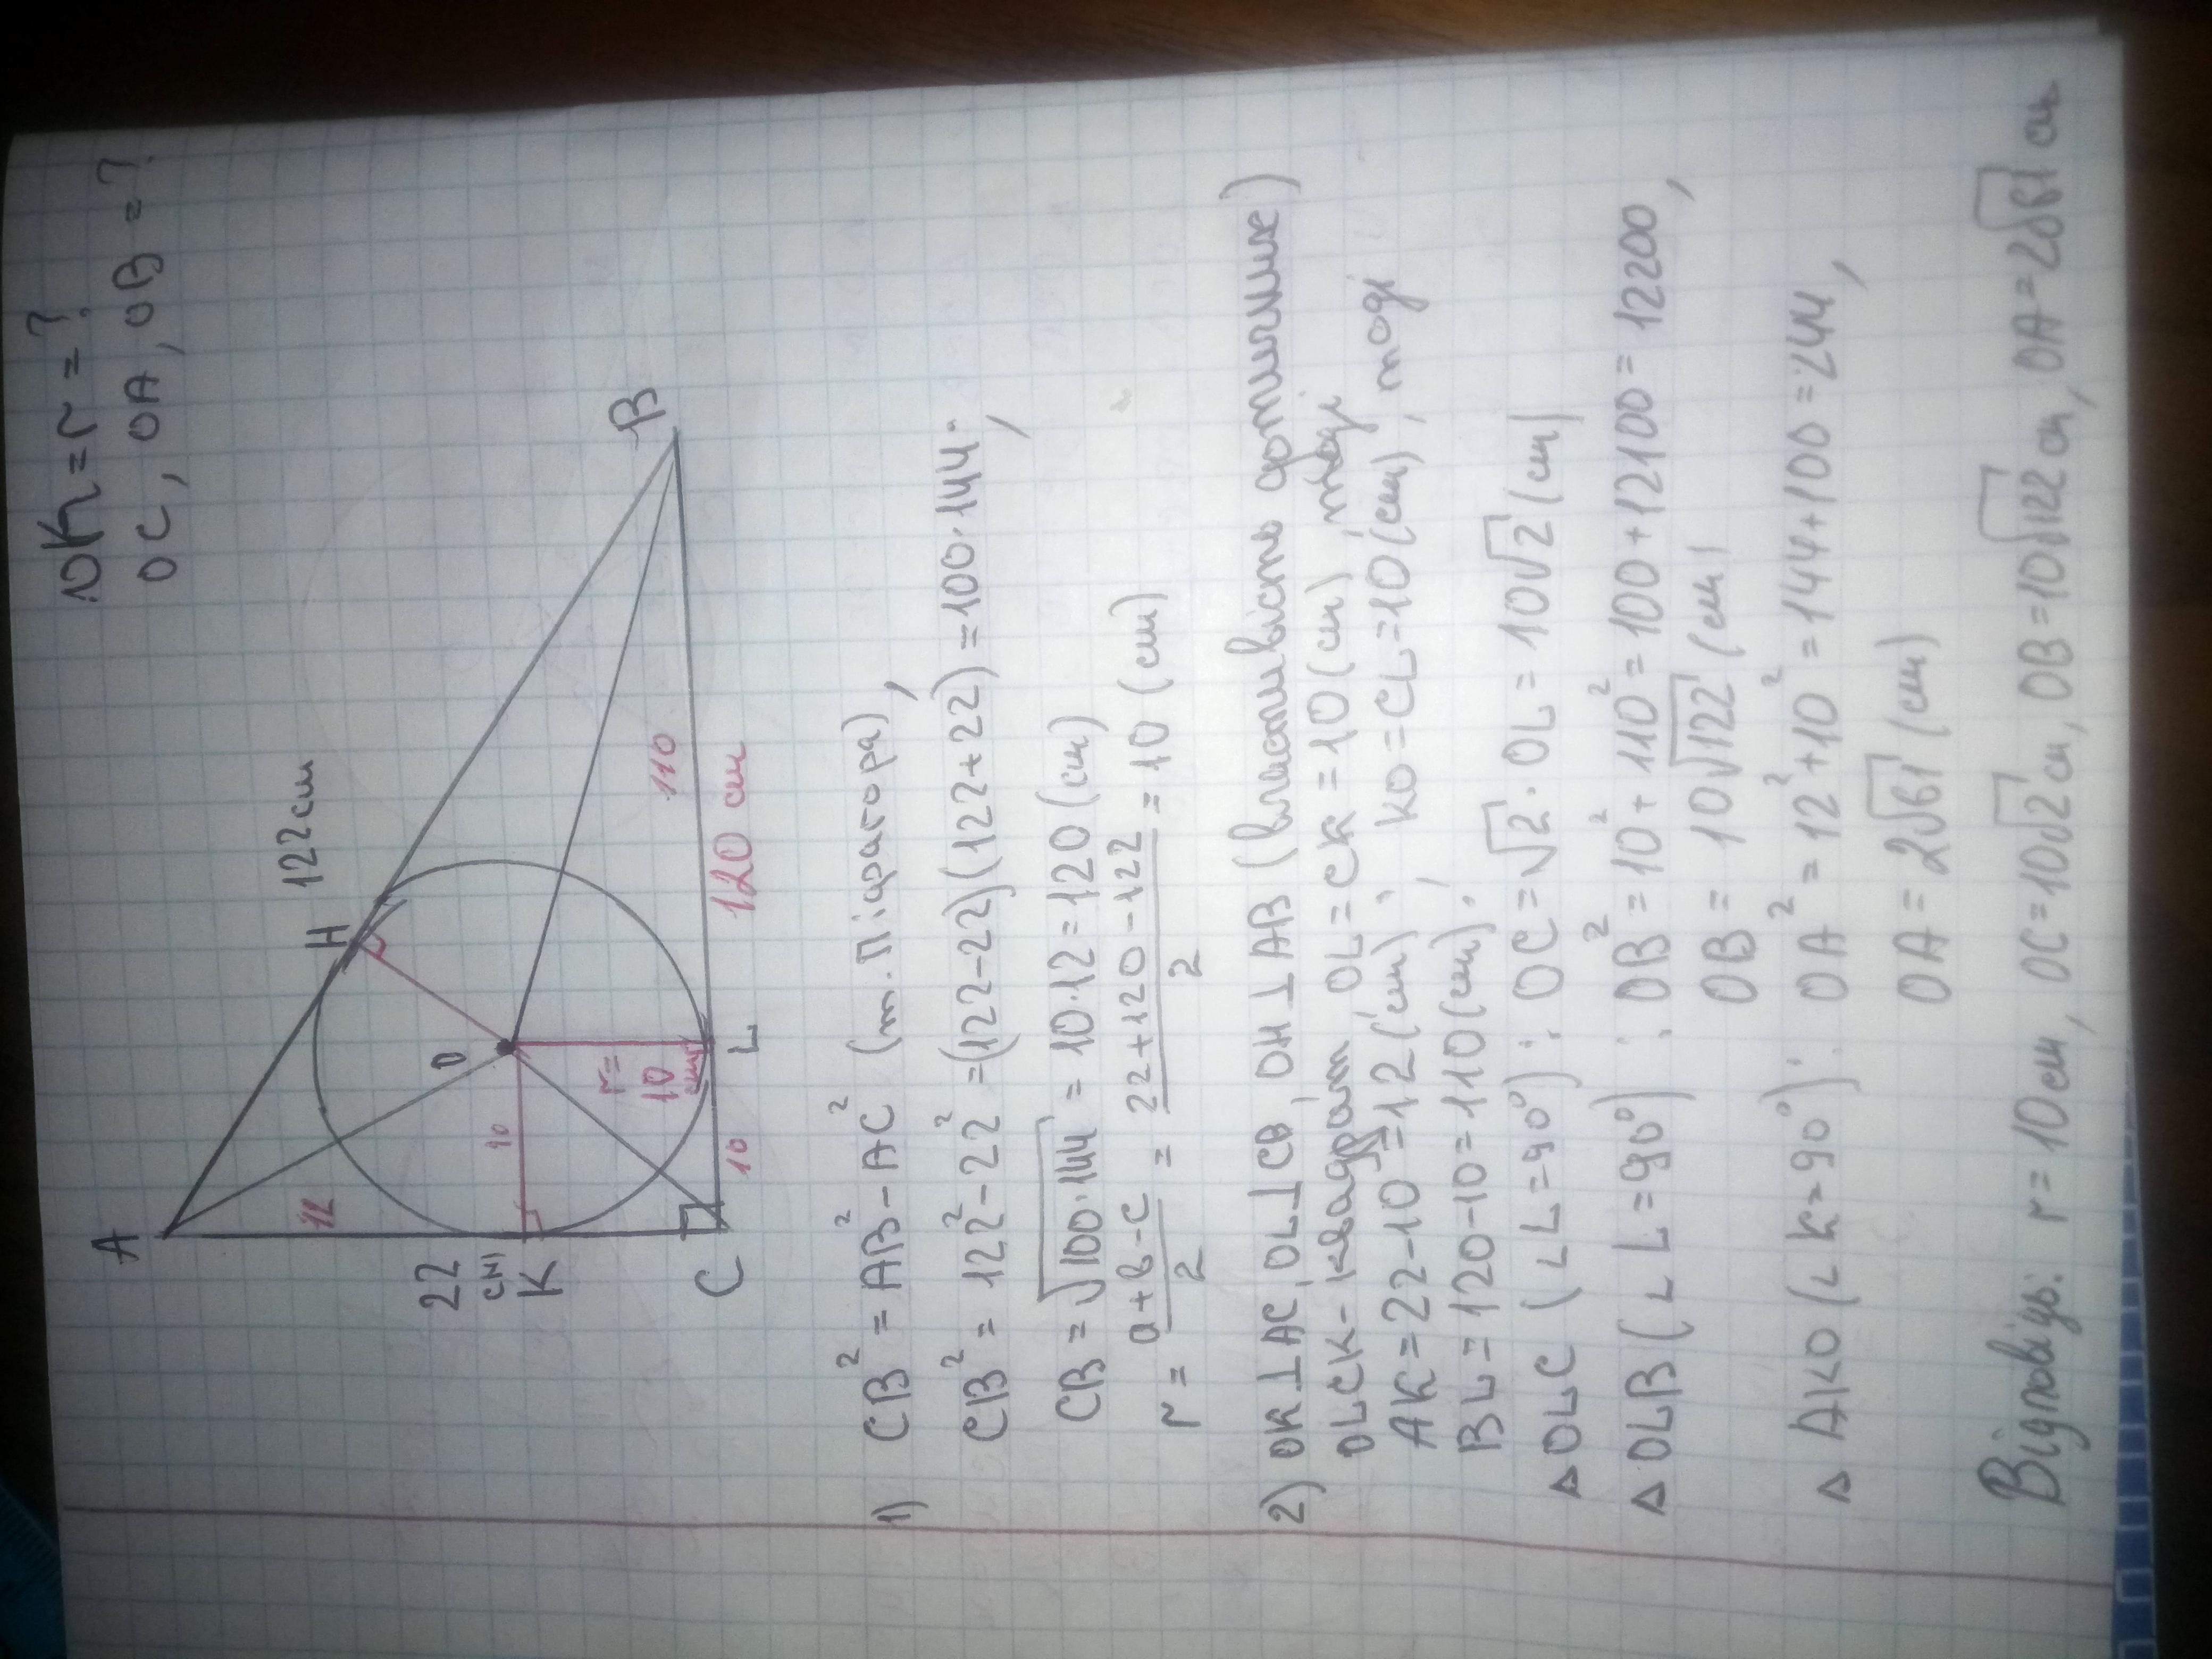 OK=r=?
OC, OA, OB=?
A
H
122 см
12
22
см
K
10
O
r=
10
см
C
10
L
110
120 см
B
1) CB²=AB²-AC² (т. Піфагора),
CB²=122²-22²=(122-22)(122+22)=100·144,
CB=√100·144=10·12=120(см)
r=(a+b-c)/2=(22+120-122)/2=10(см)
2) OK⊥AC, OL⊥CB, OH⊥AB (властивість дотичних)
OLCK-квадрат, OL=CK=10(см), тоді
AK=22-10=12(см); KO=CL=10(см), тоді
BL=120-10=110(см);
△OLC (∠L=90°): OC=√2·OL=10√2(см)
△OLB (∠L=90°): OB²=10²+110²=100+12100=12200,
OB=10√122(см)
△AKO (∠K=90°): OA²=12²+10²=144+100=244,
OA=2√61(см)
Відповідь: r=10см, OC=10√2см, OB=10√122см, OA=2√61см